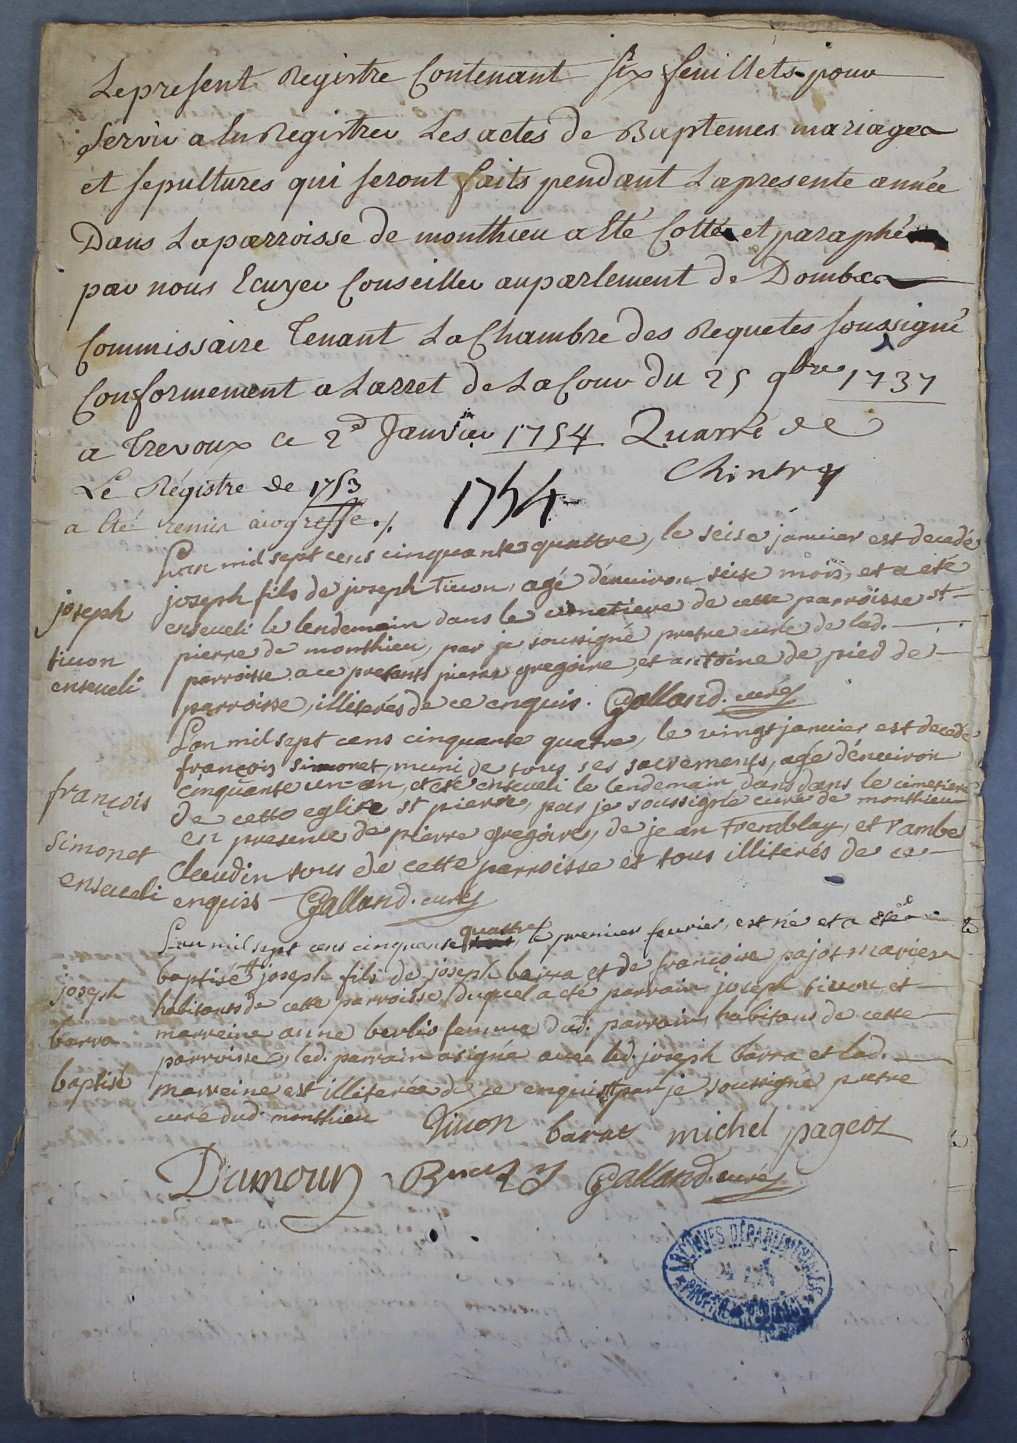 Le present Registre Contenant six feuillets pour
servir a En Registrer Les actes de Baptemes mariages
et sepultures qui seront faits pendant La presente année
Dans La parroisse de monthieu a Eté Cotté et paraphé
par nous Ecuyer Conseiller au parlement de Dombes
Commissaire Tenant La Chambre des Requetes soussigné
Conformement a Larret de La Cour du 25 9bre 1737
a Trevoux ce 2d Janvier 1754 Quarré de
Chintry
Le Régistre de 1753
a Eté remis au greffe ./.
1754
L'an mil sept cens cinquante quattre, le seise janvier est decedé
joseph fils de joseph Tivon, agé d'énviron seise mois, et a eté
enseveli le lendemain dans le cimetiere de cette parroisse st
pierre de monthieu, par je soussigné pretre curé de lad.
parroisse a ce presents pierre gregoire, et antoine de pied de
parroisse, illiterés de ce enquis. Galland. curé
joseph
tivon
enseveli
L'an mil sept cens cinquante quatre, le vingt janvier est decedé
françois simonet, muni de tous ses sacrements, agé d'énviron
cinquante un an, et eté enseveli le lendemain dans dans le cimetiere
de cette eglise st pierre, par je soussigné curé de monthieu
en presence de pierre gregoire, de jean Tremblay, et l'ambe
Claudin tous de cette parroisse et tous illiterés de ce
enquis Galland. curé
françois
simonet
enseveli
L'an mil sept cens cinquante quattre, le premier fevrier, est né et a eté
baptisé joseph fils de joseph barra et de françoise pajot mariés
habitants de cette parroisse, duquel a eté parrain joseph tivon, et
marreine anne berlio femme dud. parrain, habitans de cette
parroisse, led. parrain a signé avec led. joseph barra et lad.
marreine est illiterée de ce enquis par je soussigné pretre
curé dud. monthieu
joseph
barra
baptisé
Tivon barat michel pageoz
Damoun Galland. curé
ARCHIVES DÉPARTEMENTALES